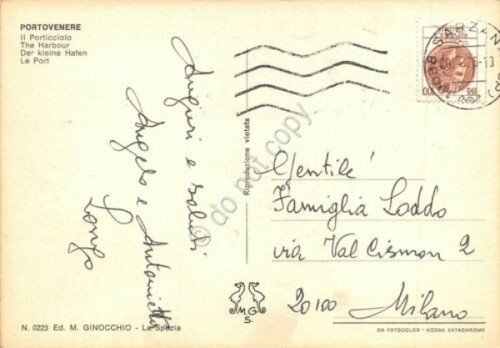 PORTOVENERE
Il Porticciolo
The Harbour
Der kleine Hafen
Le Port
Auguri e saluti
Angelo e Antonietta
Longo
Riproduzione vietata
SARZANA
100
Gentile
Famiglia Loddo
via Val Cismon 2
20100 Milano
MG
S.
N. 0223 Ed. M. GINOCCHIO - La Spezia
DA FOTOCOLOR - KODAK EKTACHROME
do not copy